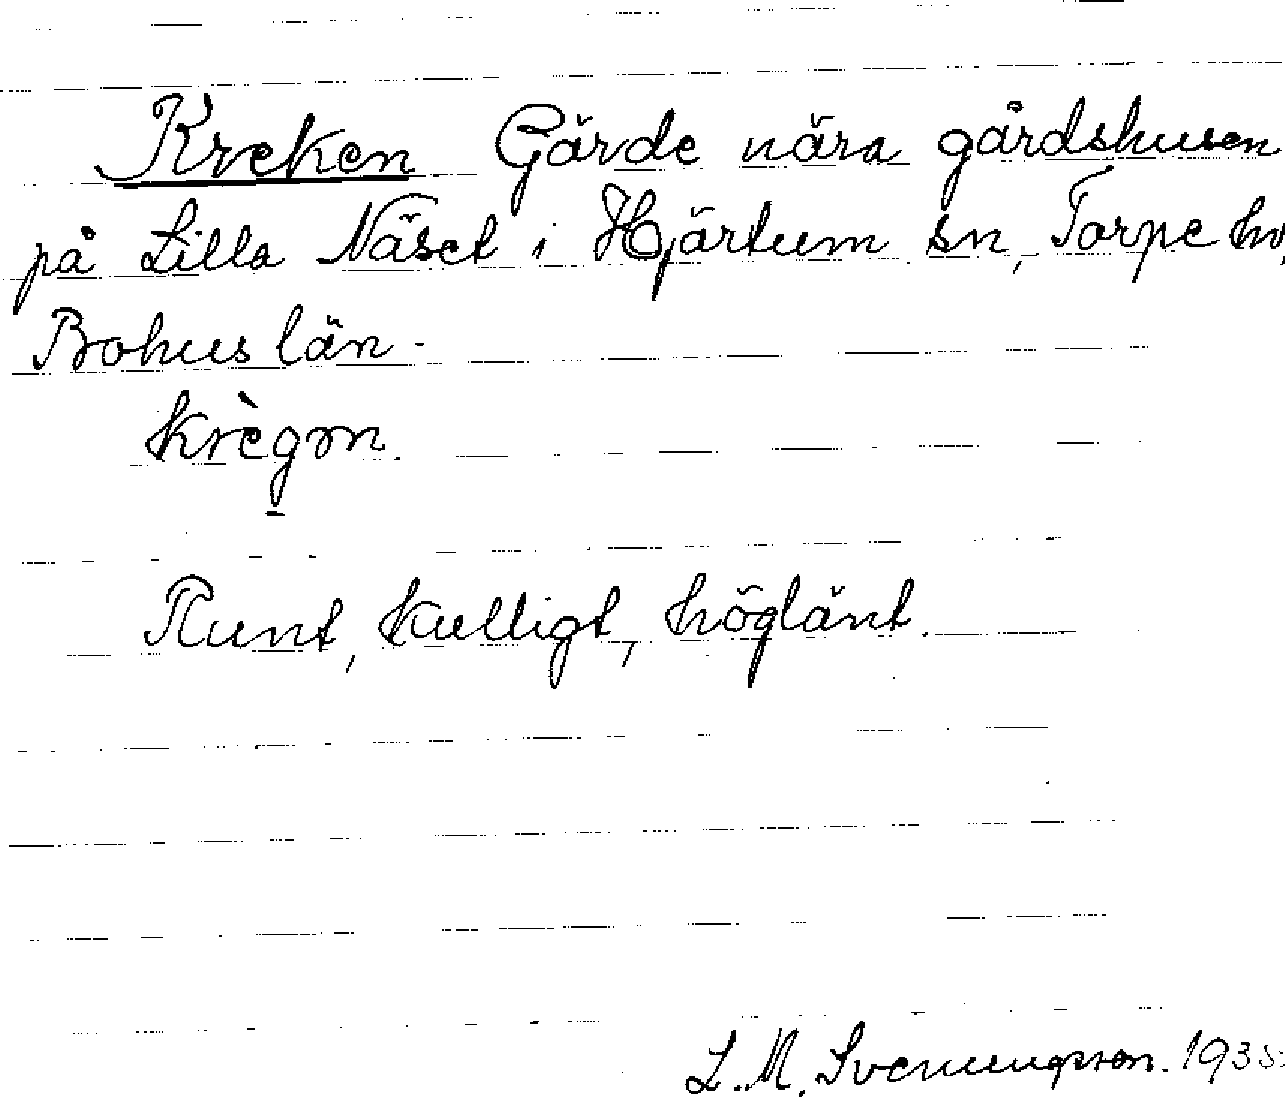 Kreken Gärde nära gårdshusen
på Lilla Näset i Hjärtum sn, Torpe hd,
Bohus län.
krègɷn.
Runt, kulligt, höglänt.
L. M. Svenungsson. 1935.